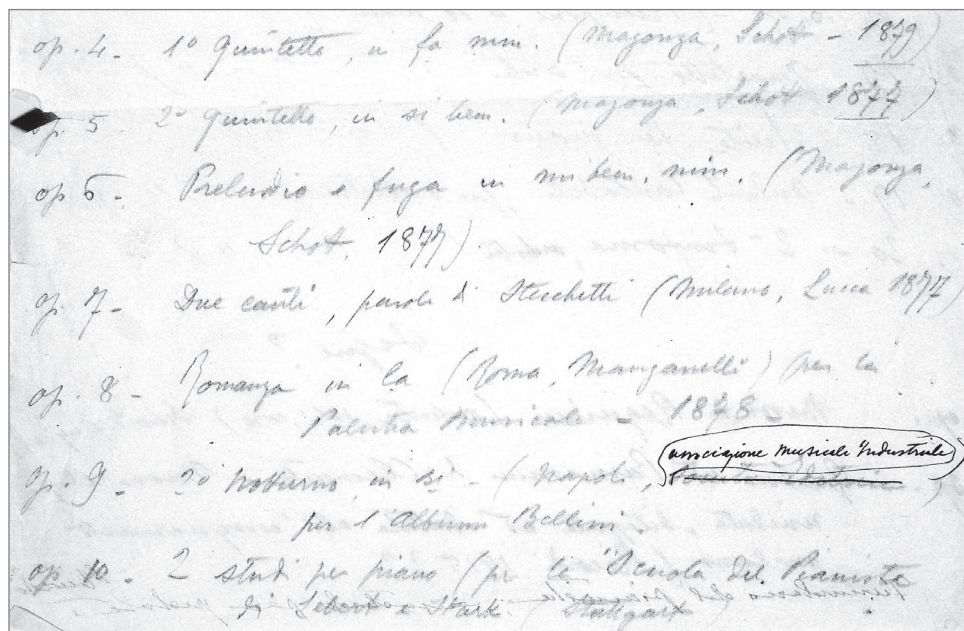 op. 4 - 1º Quintetto, in fa min. (Magonza, Schot - 1879)
op. 5 - 2º Quintetto, in si bem. (Magonza, Schot 1877)
op. 6 - Preludio e fuga in mi bem. min. (Magonza,
Schot, 1877)
op. 7 - Due canti, parole di Stecchetti (Milano, Lucca 1877)
op. 8 - Romanza in la (Roma, Manganelli) per la
Palestra Musicale - 1878
associazione musicale industriale
op. 9 - 2º Notturno, in si - (Napoli, )
per l'Album Bellini
op. 10 - 2 studi per piano (per la "Scuola del Pianista
di Lebert e Stark. Stuttgart